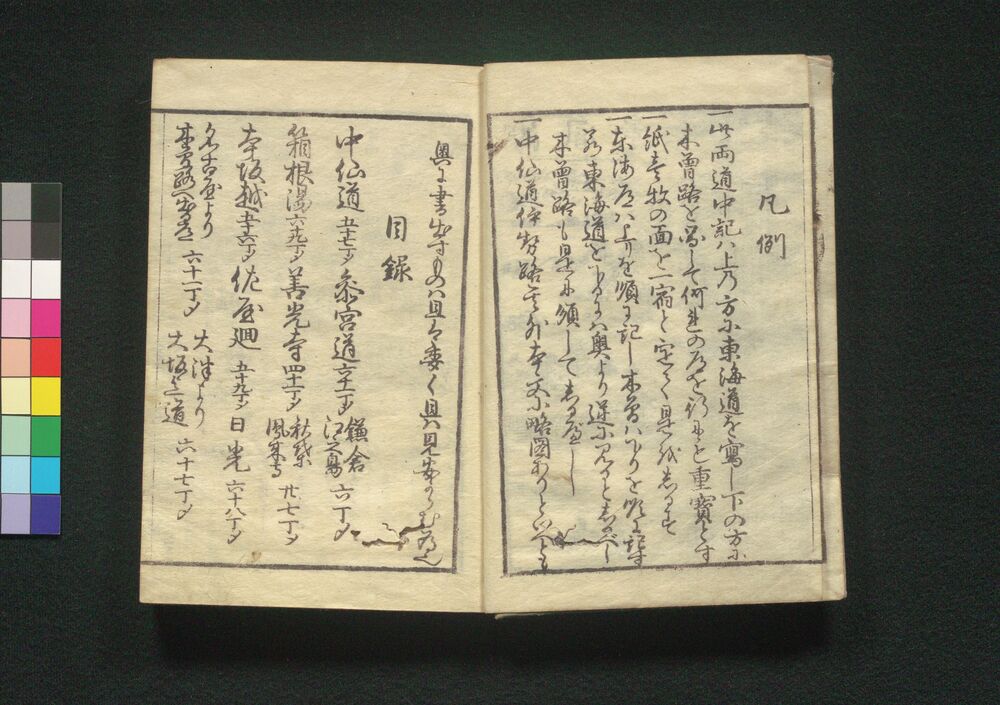 凡例
一此両道中記ハ上乃方ニ東海道を寫し下の方ニ
木曽路を冩して何連の道を行にも重寶とす
一紙壱枚の面を一宿と定て是越志るす
一東海道ハ上りを順に記し木曽ハ下りを順に記す
若東海道を下るにハ奥より逆ニ見ると志るべし
木曽路も是に順して志るべし
一中仙道伊勢路其外本文ニ略図ありといへども
奥に書出すものハ且ツ委く具
目録
中仙道 五十七丁メ 参宮道 六十一丁メ 鎌倉 江之島 六丁メ
箱根湯 六十九丁メ 善光寺 四十一丁メ 秋葉 鳳来寺 廿七丁メ
本坂越 五十六丁メ 佐屋廻 五十九丁メ 日光 六十八丁メ
名古屋より
木曽路へ出道 六十一丁メ 大津より
大坂迄道 六十七丁メ